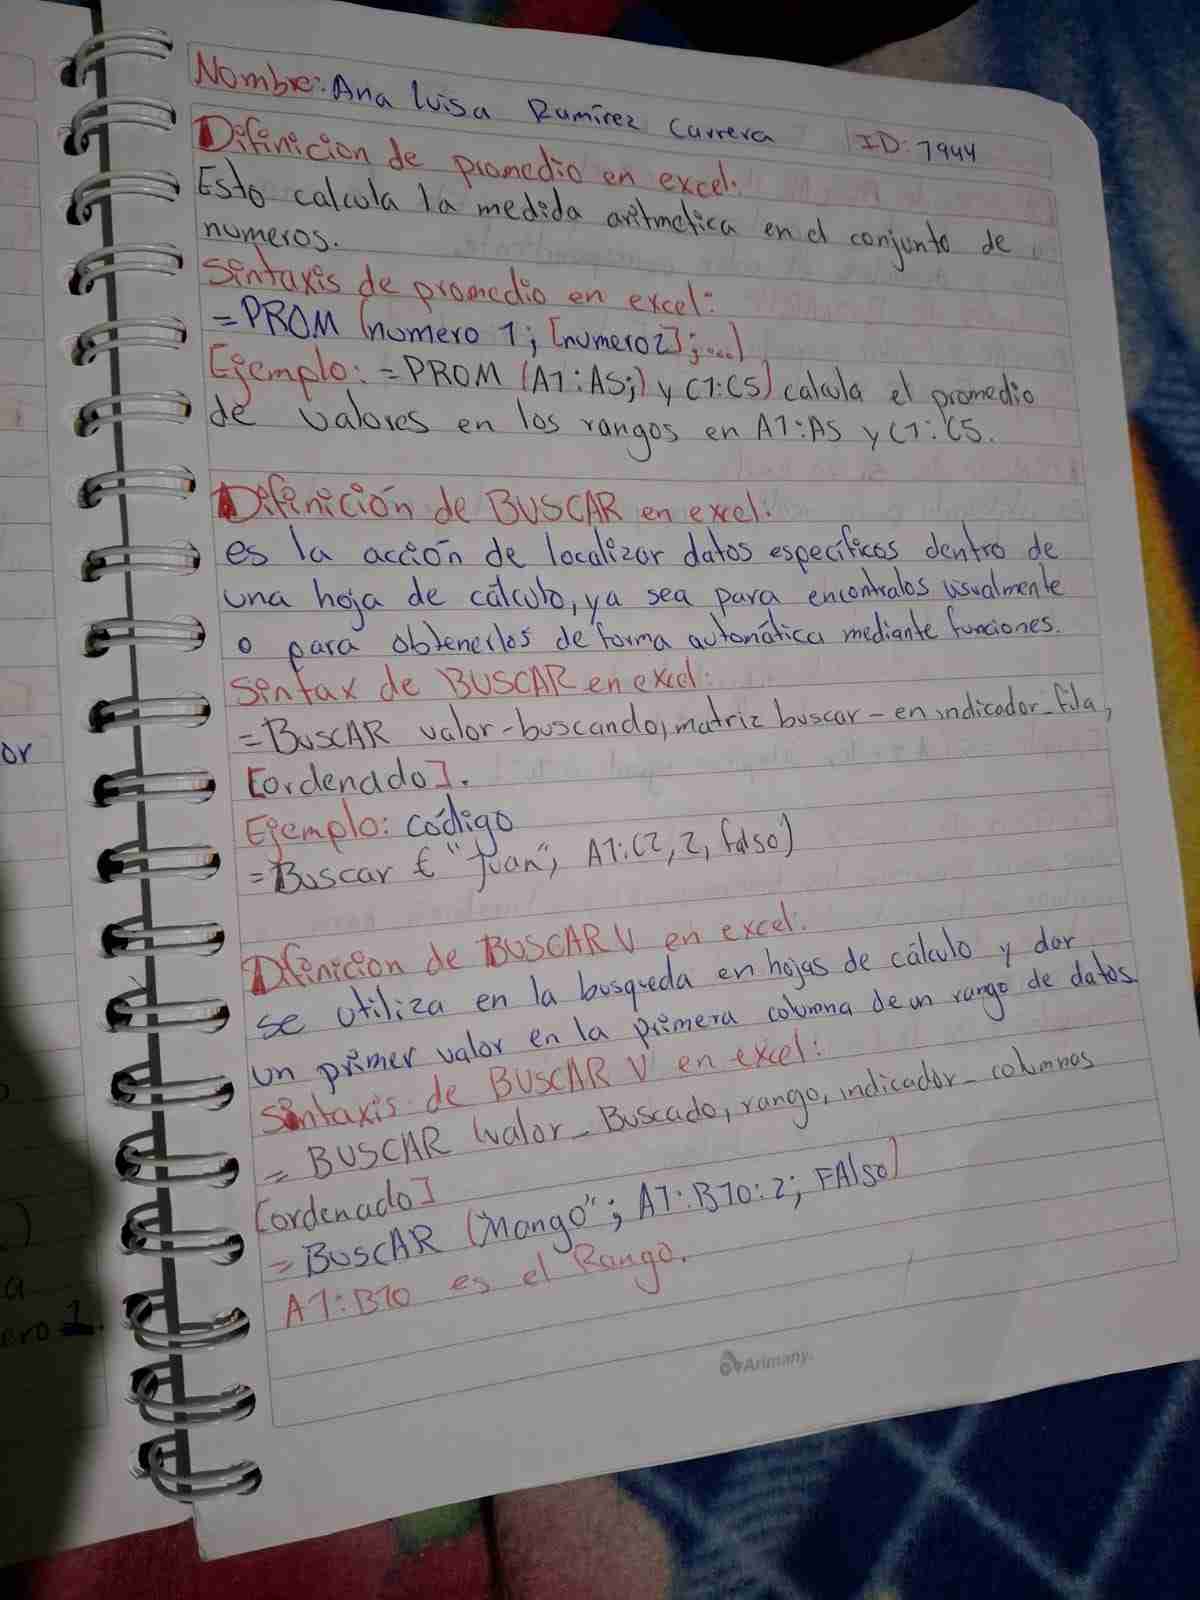 Nombre: Ana Luisa Ramírez Carrera ID: 7944
Difinicion de promedio en excel:
Esto calcula la medida aritmetica en el conjunto de
numeros.
Sintaxis de promedio en excel:
=PROM (numero 1; [numero2];...)
Ejemplo: =PROM (A1:A5;) y C1:C5) calcula el promedio
de valores en los rangos en A1:A5 y C1:C5.
Difinición de BUSCAR en excel:
es la acción de localizar datos específicos dentro de
una hoja de cálculo, ya sea para encontralos visualmente
o para obtenerlos de forma automática mediante funciones.
Sentax de BUSCAR en excel:
=BuscAR valor-buscando, matriz buscar-en indicador_fila,
[ordenado].
Ejemplo: código
=Buscar € "Juan", A1:C2, 2, falso)
Dfinicion de BUSCAR V en excel:
se utiliza en la busqueda en hojas de cálculo y dar
un primer valor en la primera columna de un rango de datos.
Sintaxis de BUSCAR V en excel:
= BUSCAR (valor_Buscado, rango, indicador_columnas
[ordenado]
= BuscAR ("Mango"; A1:B10:2; FAlso)
A1:B10 es el Rango.
Arimany.
or
a
ero 1.